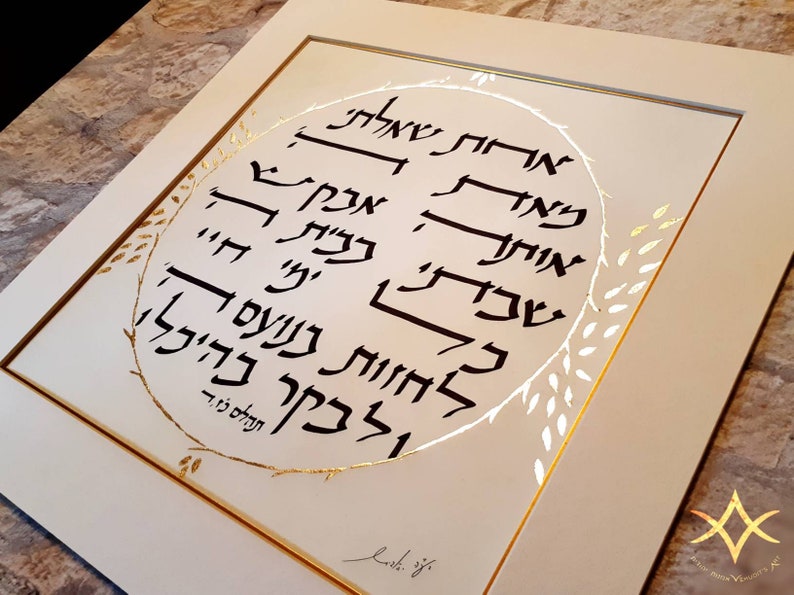 אחת שאלתי
מאת ה'
אותה אבקש
שבתי בבית ה'
כל ימי חיי
לחזות בנועם ה'
ולבקר בהיכלו
תהלים כז,ד
Yehudit's Art